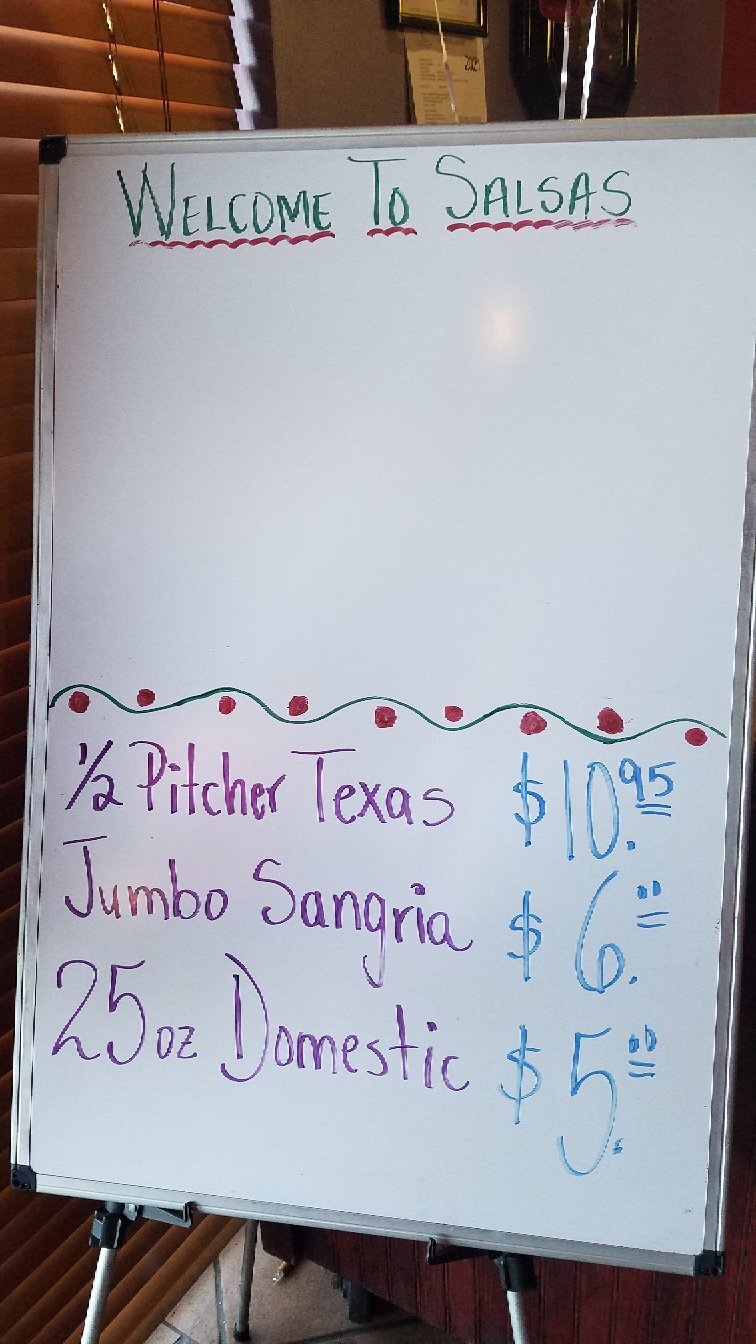 WELCOME TO SALSAS
1/2 Pitcher Texas $10.95
Jumbo Sangria $6.00
25oz Domestic $5.00